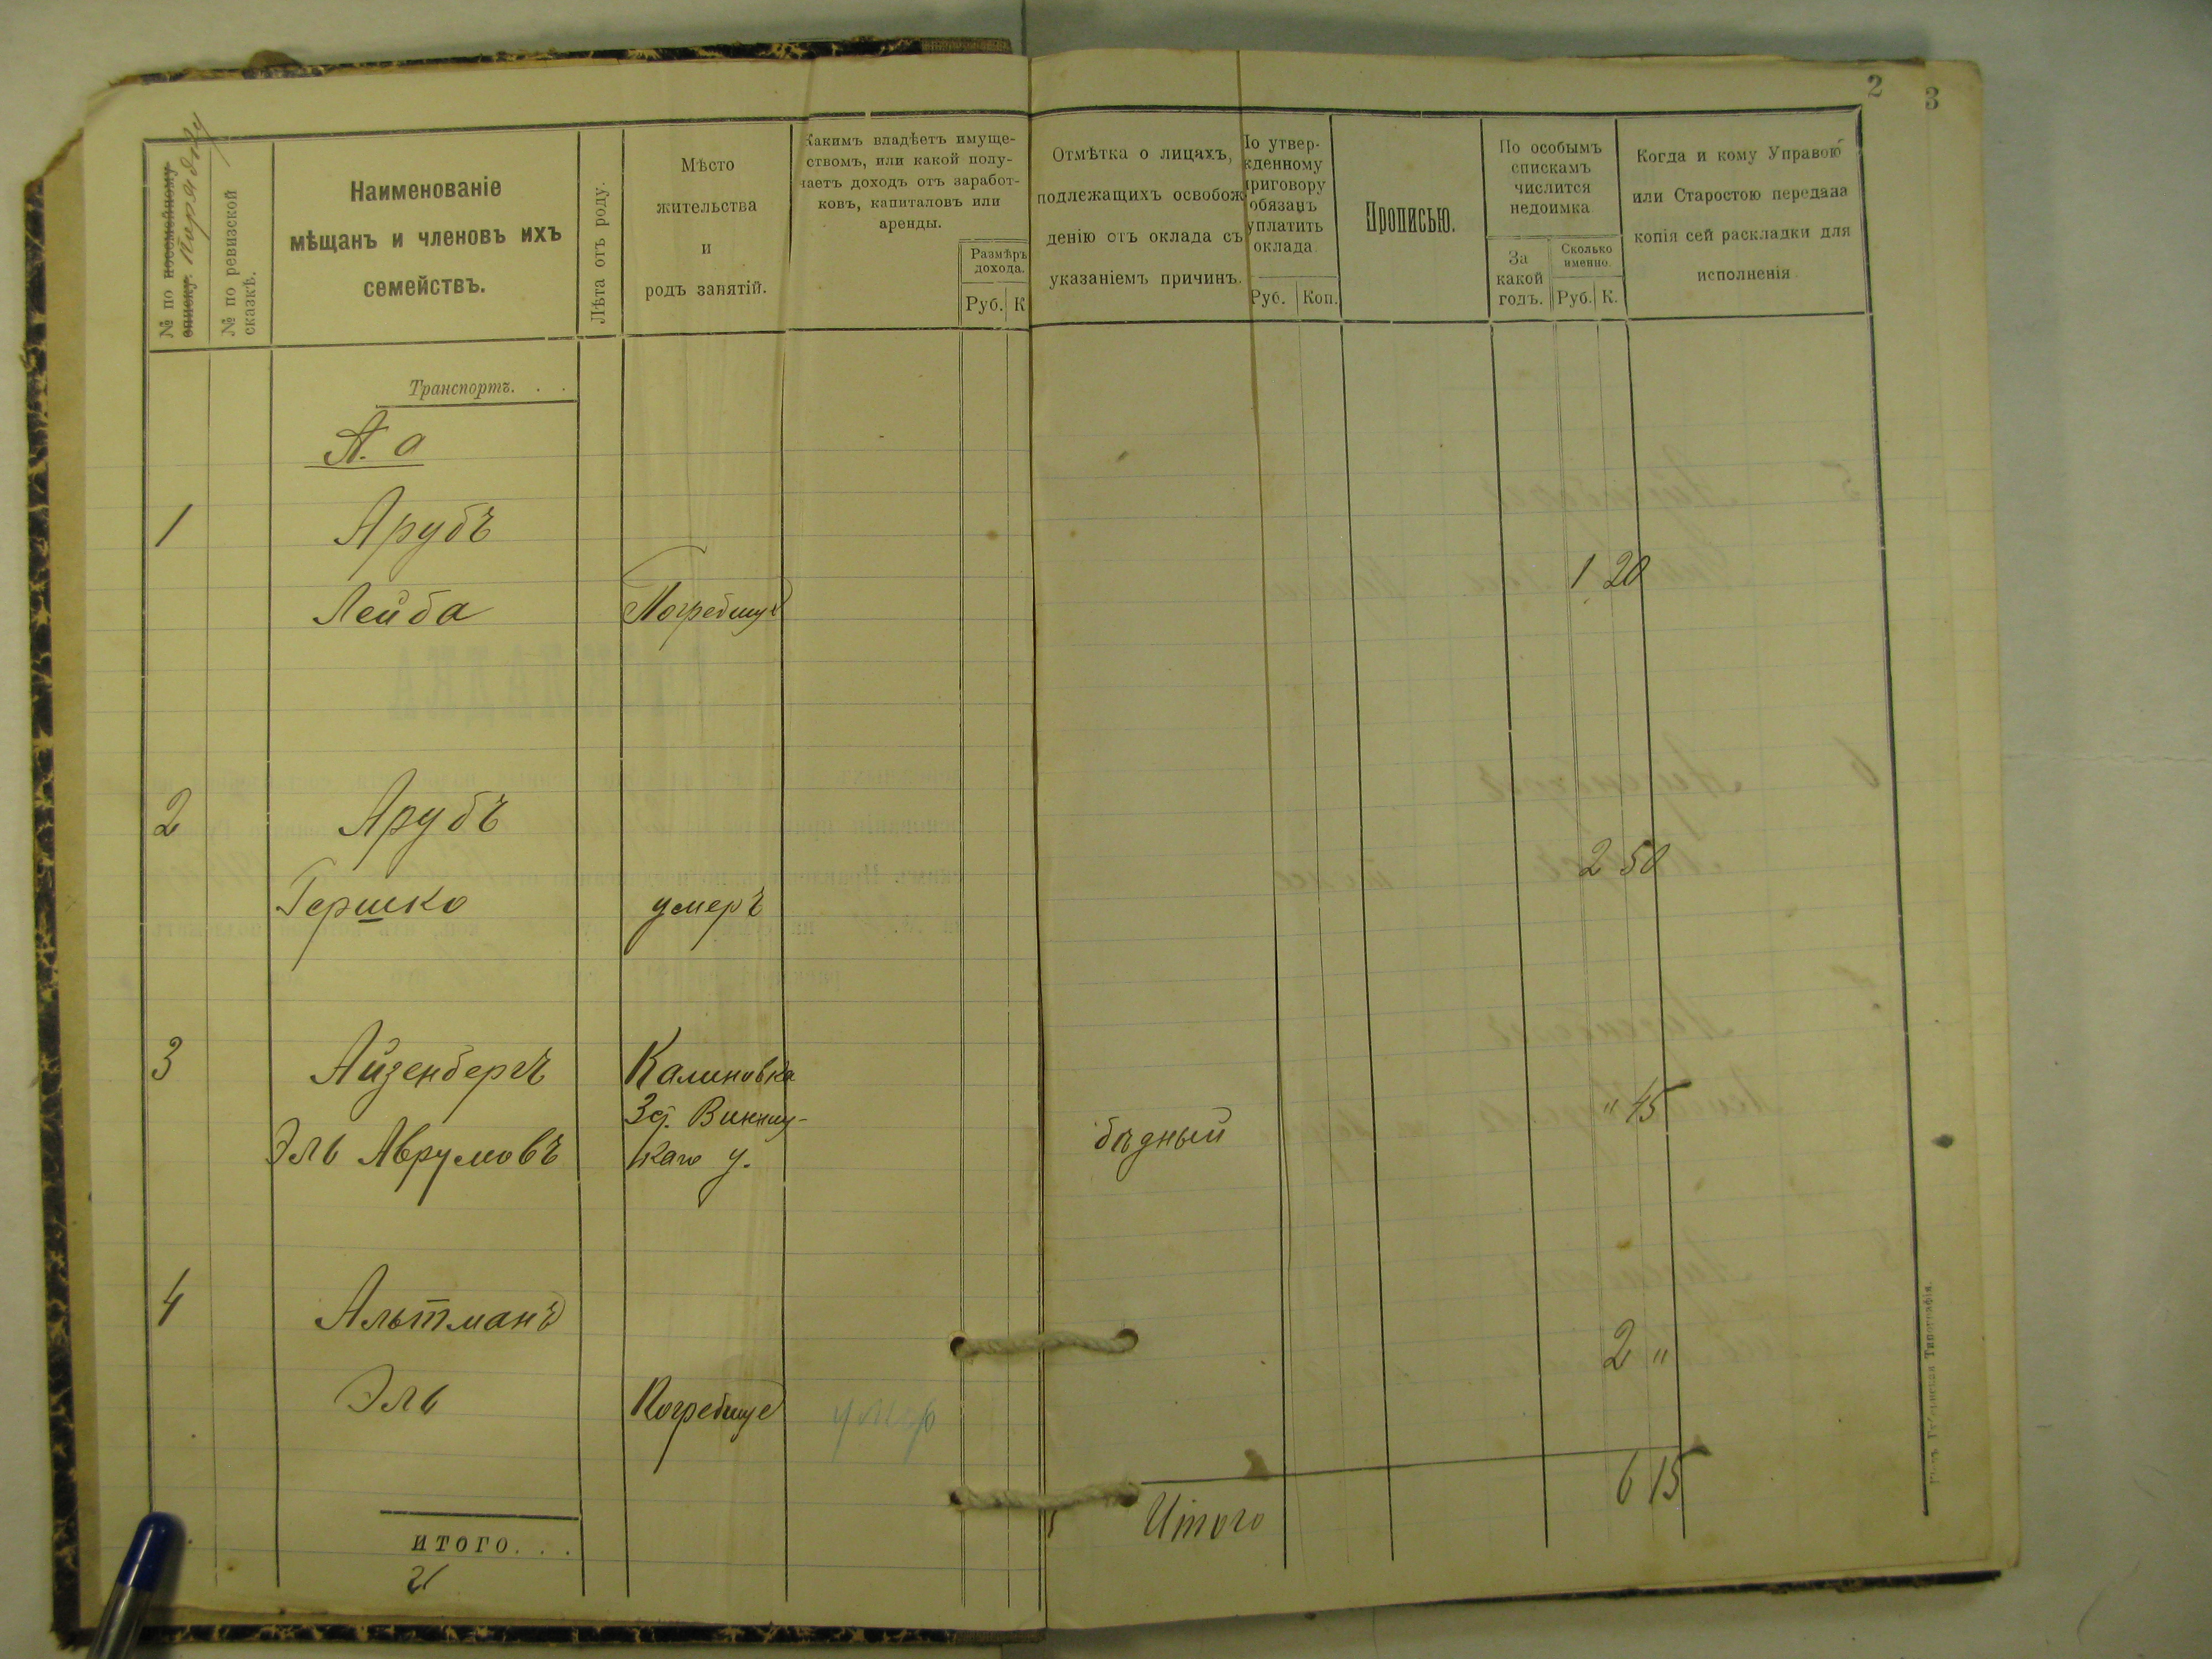 2 3
№ по посемейному списку. Порядку
№ по ревизской сказкѣ.
Наименованіе
мѣщанъ и членовъ ихъ
семействъ.
Лѣта отъ роду.
Мѣсто
жительства
и
родъ занятій.
Какимъ владѣетъ имуще-
ствомъ, или какой полу-
чаетъ доходъ отъ заработ-
ковъ, капиталовъ или
аренды.
Размѣръ
дохода.
Руб. К
Отмѣтка о лицахъ,
подлежащихъ освобож
денію отъ оклада съ
указаніемъ причинъ.
По утвер-
жденному
приговору
обязанъ
уплатить
оклада
Руб. Коп.
Прописью.
По особымъ
спискамъ
числится
недоимка
За
какой
годъ.
Сколько
именно.
Руб. К.
Когда и кому Управою
или Старостою передана
копія сей раскладки для
исполненія
Транспортъ. . .
А. а
1 Арубъ
Лейба Погребище 1 20
2 Арубъ
Гершко умеръ 2 50
3 Айзенбергъ Калиновка
Винниц-
Эль Аврумовъ каго у. бѣдный " 45
4 Альтманъ
Эль Погребище умер 2 "
Итого 6 15
ИТОГО. . .